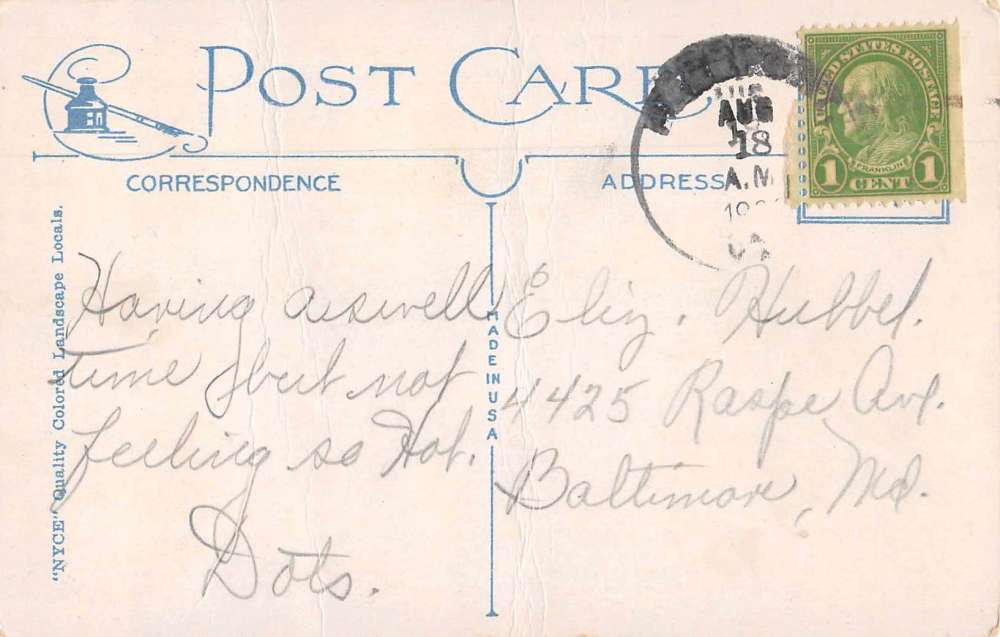 POST CARD
CORRESPONDENCE
ADDRESS
AUG
18
A.M.
UNITED STATES POSTAGE
FRANKLIN
1 CENT 1
"NYCE" Quality Colored Landscape Locals.
MADE IN USA
Having a swell
time but not
feeling so Hot.
Dots.
Eliz. Hubbel.
4425 Raspe Ave.
Baltimore, Md.